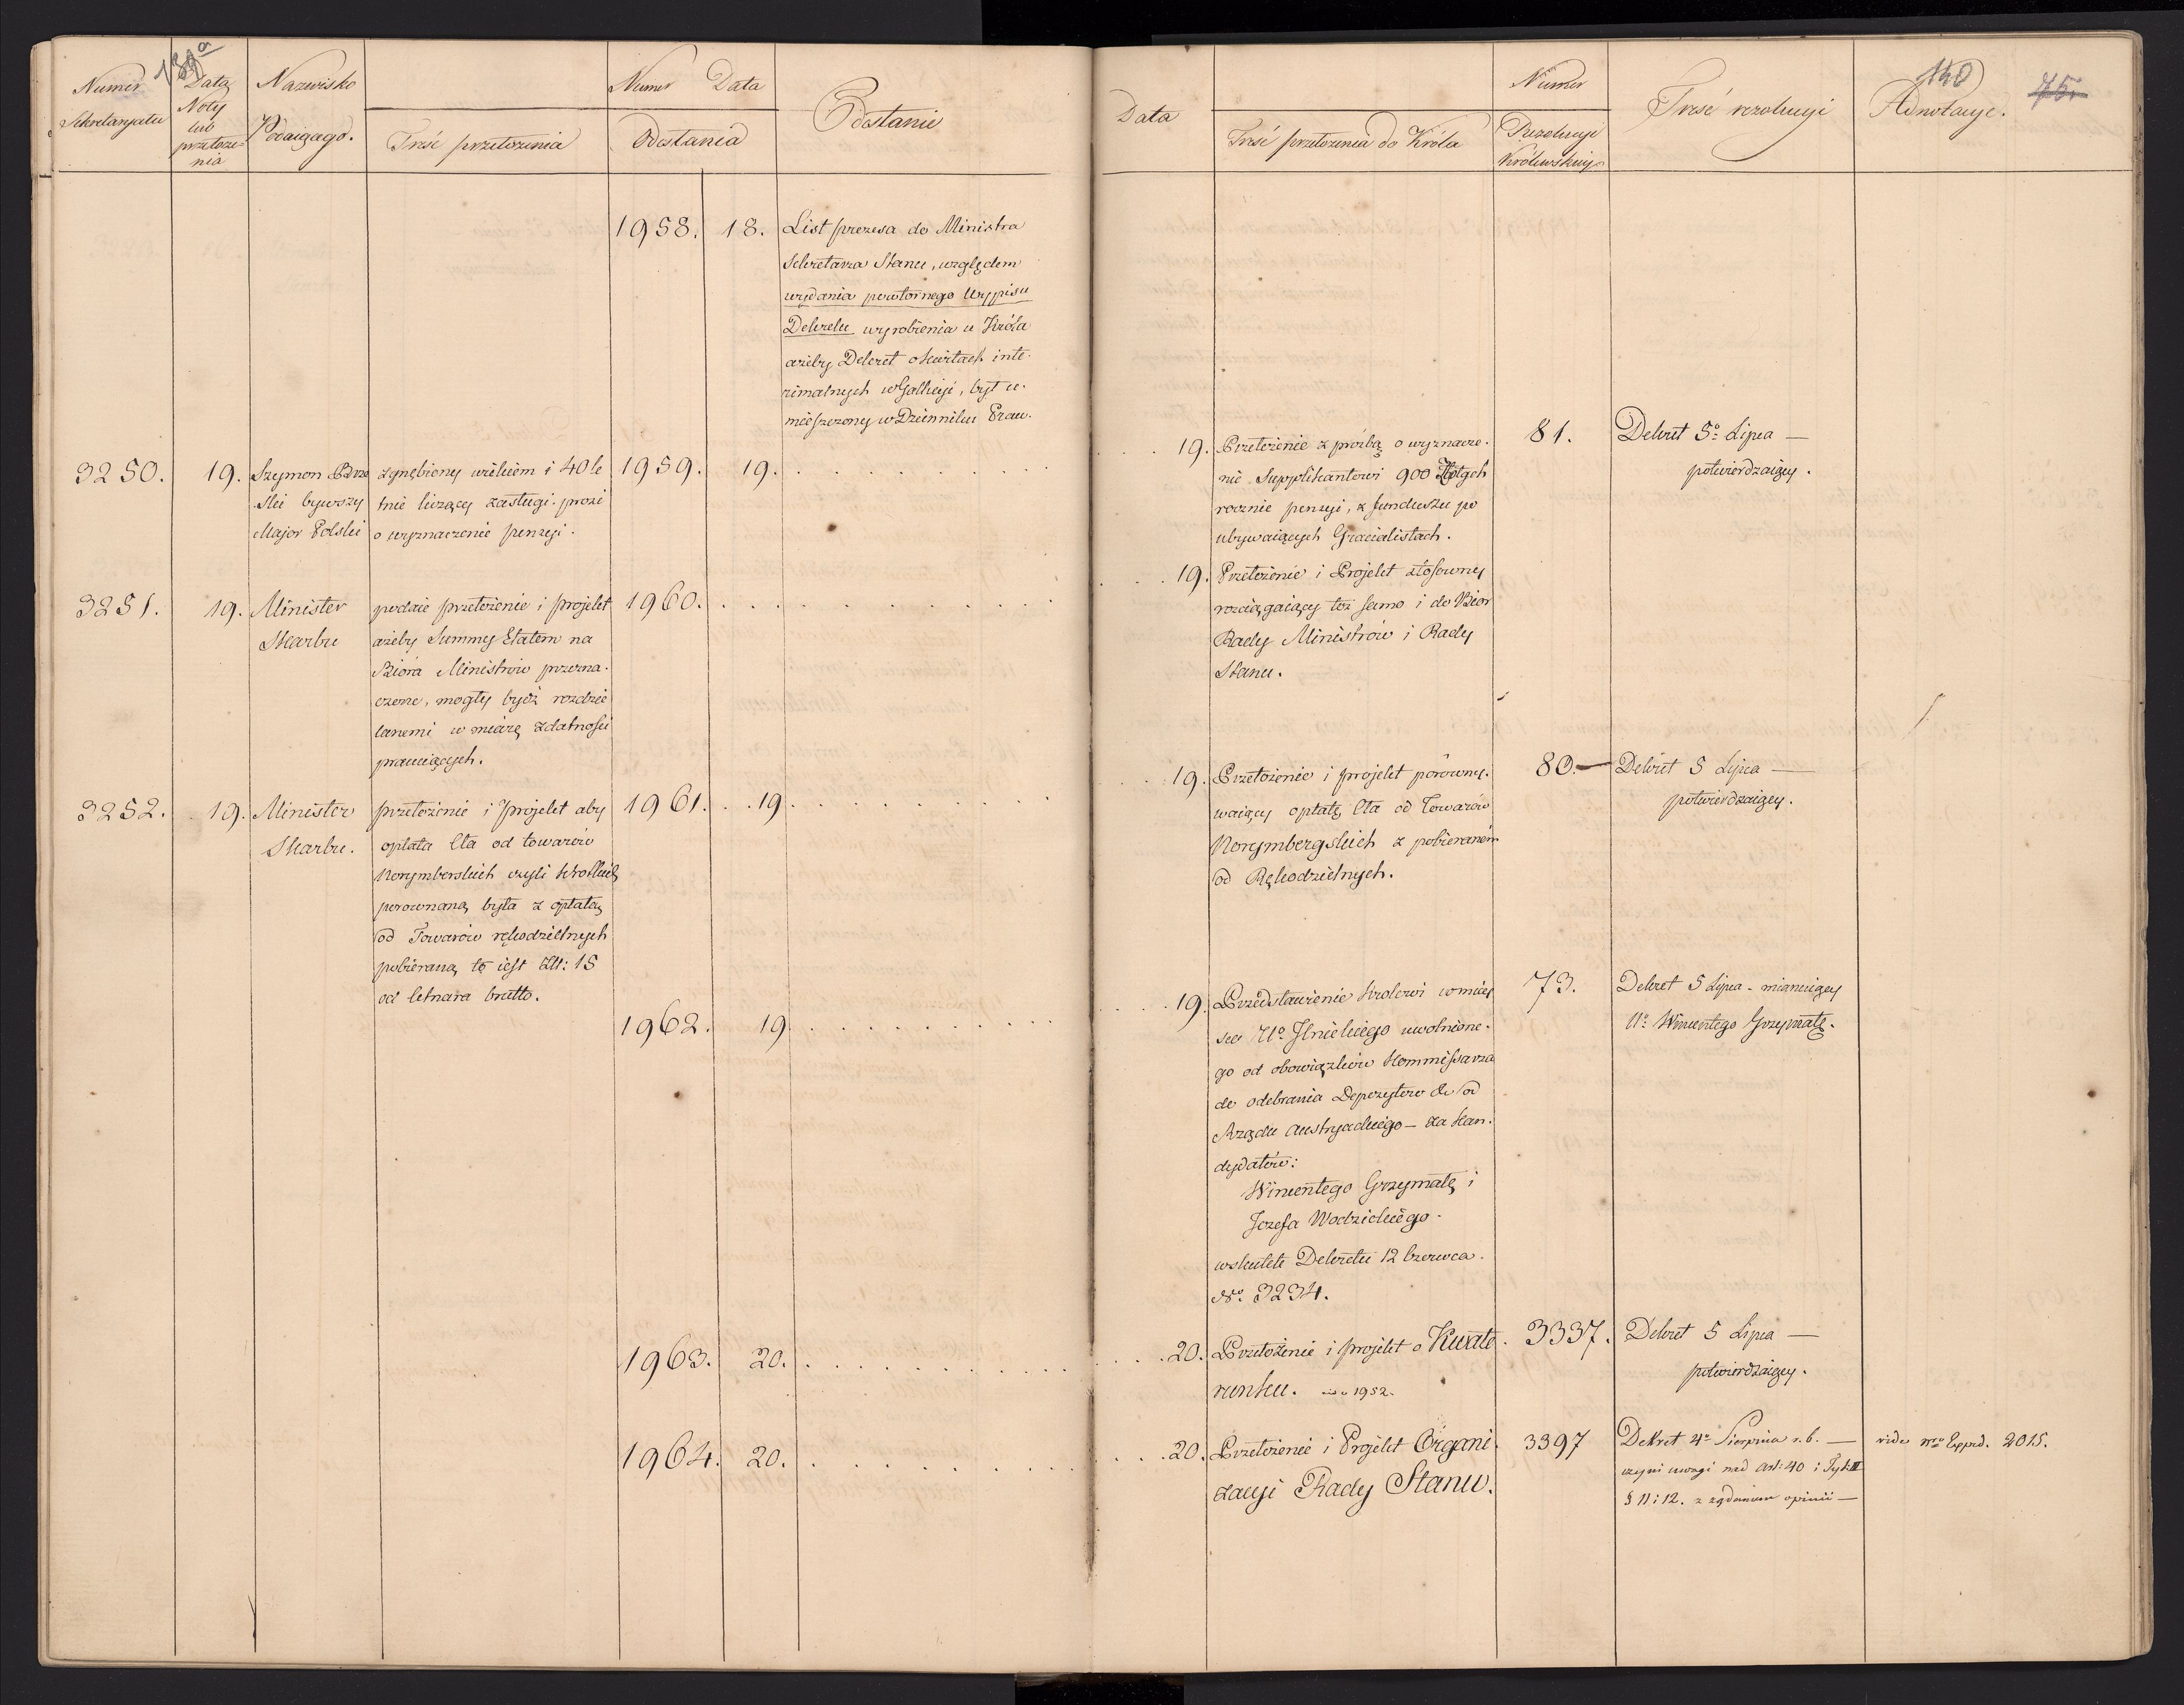 139a
Numer Sekretaryatu
Data Noty lub przełoże-
nia
Nazwisko Podaiącego.
Treść przełożenia
Numer Data
Odesłania
Odesłanie
1958. 18. List prezesa do Ministra
Sekretarza Stanu, względem
wydania powtórnego Wypisu
Dekretu wyrobienia u Króla
ażeby Dekret o kartach inte-
rimalnych w Gallicyi, był u-
mieszczony w Dzienniku Praw.
3250. 19. Szymon 
ski bywszy
Major Polski
zgnębiony wiekiem i 40 le
tnie liczący zasługi. prosi
o wyznaczenie pensyi.
1959. 19.
3251. 19. Minister
Skarbu
podaie przełożenie i projekt
ażeby Summy Etatem na
Biora Ministrów przezna-
czone, mogły bydź rozdzie
lanemi w miarę zdatności
pracuiących.
1960.
3252. 19. Minister
Skarbu.
przełożenie i projekt aby
opłata Cła od towarów
Norymberskich czyli krotkich
porownaną była z opłatą
od Towarów rękodzielnych
pobieraną to iest Zł: 15
od Cetnara brutto.
1961. 19.
1962. 19.
1963. 20.
1964. 20.
140
75.
Data
Treść przełożenia do Króla
Numer
Rezolucyi
Królewskiey
Treść rezolucyi
Adnotacye.
19. Przełożenie z prośbą o wyznacze-
nie Supplikantowi 900 Złotych
rocznie pensyi, z funduszu po
ubywaiących Gracialistach.
81. Dekret 5o Lipca —
potwierdzaiący.
19. Przełożenie i Projekt stosowny
rozciągaiący toż samo i do Biór
Rady Ministrów i Rady
Stanu.
19. Przełożenie i projekt porówny-
waiący opłatę Cła od Towarów
Norymbergskich z pobieraném
od Rękodzielnych.
80. — Dekret 5 Lipca —
potwierdzaiący.
19. Przedstawienie Krolowi w miey
sce Ilnickiego uwolnione-
go od obowiązków Kommissarza
do odebrania Depozytów &c od
Rządu Austryackiego — za Kan-
dydatów:
Wincentego Grzymałę i
Jozefa Wodzickiego.
wskutek Dekretu 12 Czerwca.
No. 3234.
73. Dekret 5 Lipca - mianuiący
Wincentego Grzymałę.
20. Przełożenie i projekt o Kwate-
runku. 1952.
3337. Dekret 5 Lipca —
potwierdzaiący.
20. Przełożenie i Projekt Organi-
zacyi Rady Stanu.
3397 Dekret 4o Sierpnia r. b. —
czyni uwagi nad Art: 40 i Tyt: II
§ 11 i 12. z żądaniem opinii —
vide Nro Exped. 2015.